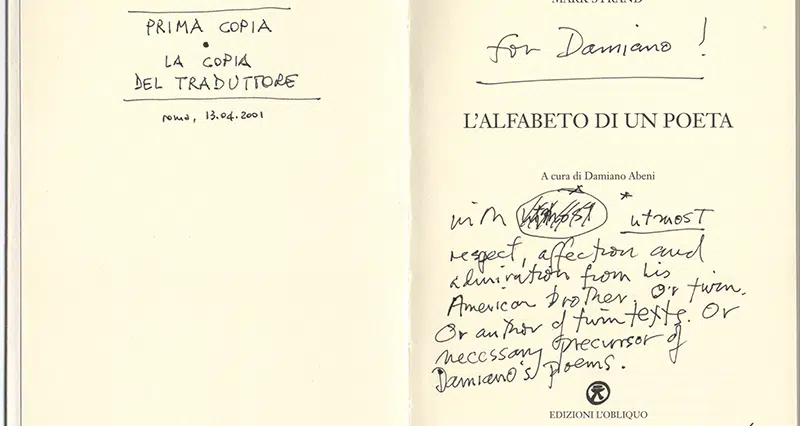 PRIMA COPIA
•
LA COPIA
DEL TRADUTTORE
roma, 13.04.2001
MARK STRAND
for Damiano!
L'ALFABETO DI UN POETA
A cura di Damiano Abeni
with * utmost
respect, affection and
admiration from his
American brother. Or twin.
Or author of twin texts. Or
necessary precursor of
Damiano's poems.
EDIZIONI L'OBLIQUO